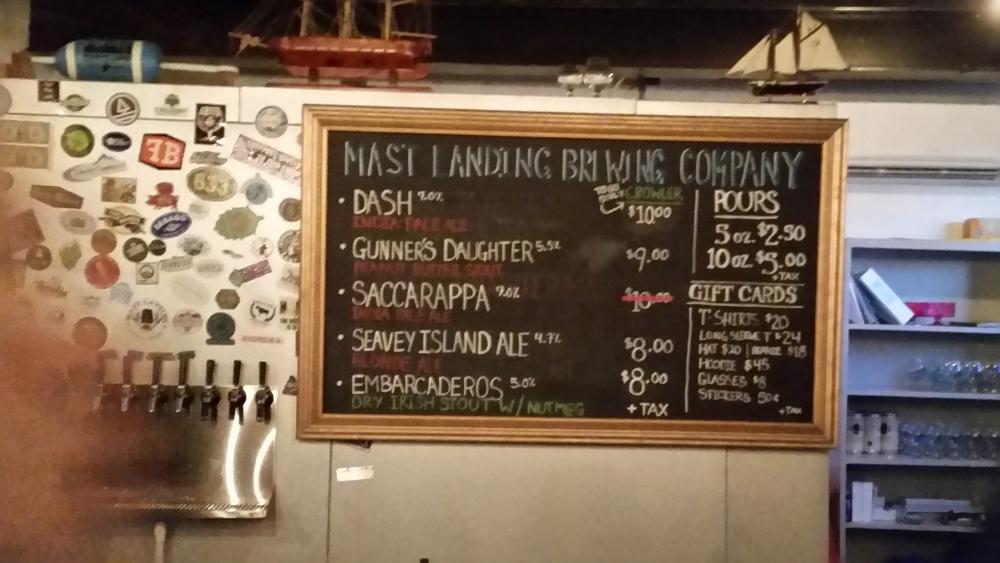 MAST LANDING BREWING COMPANY
• DASH 7.0%
INDIA PALE ALE
TO GO ONLY CROWLER
$10.00
• GUNNER'S DAUGHTER 5.5%
PEANUT BUTTER STOUT
$9.00
• SACCARAPPA 7.0%
INDIA PALE ALE
$10.00
• SEAVEY ISLAND ALE 4.7%
BLONDE ALE
$8.00
• EMBARCADEROS 5.0%
DRY IRISH STOUT W/ NUTMEG
$8.00
+ TAX
POURS
5 OZ. $2.50
10 OZ. $5.00
+TAX
GIFT CARDS
T-SHIRTS $20
LONG SLEEVE T $24
HAT $20 | BEANIE $18
HOODIE $45
GLASSES $8
STICKERS 50¢
+TAX
FB